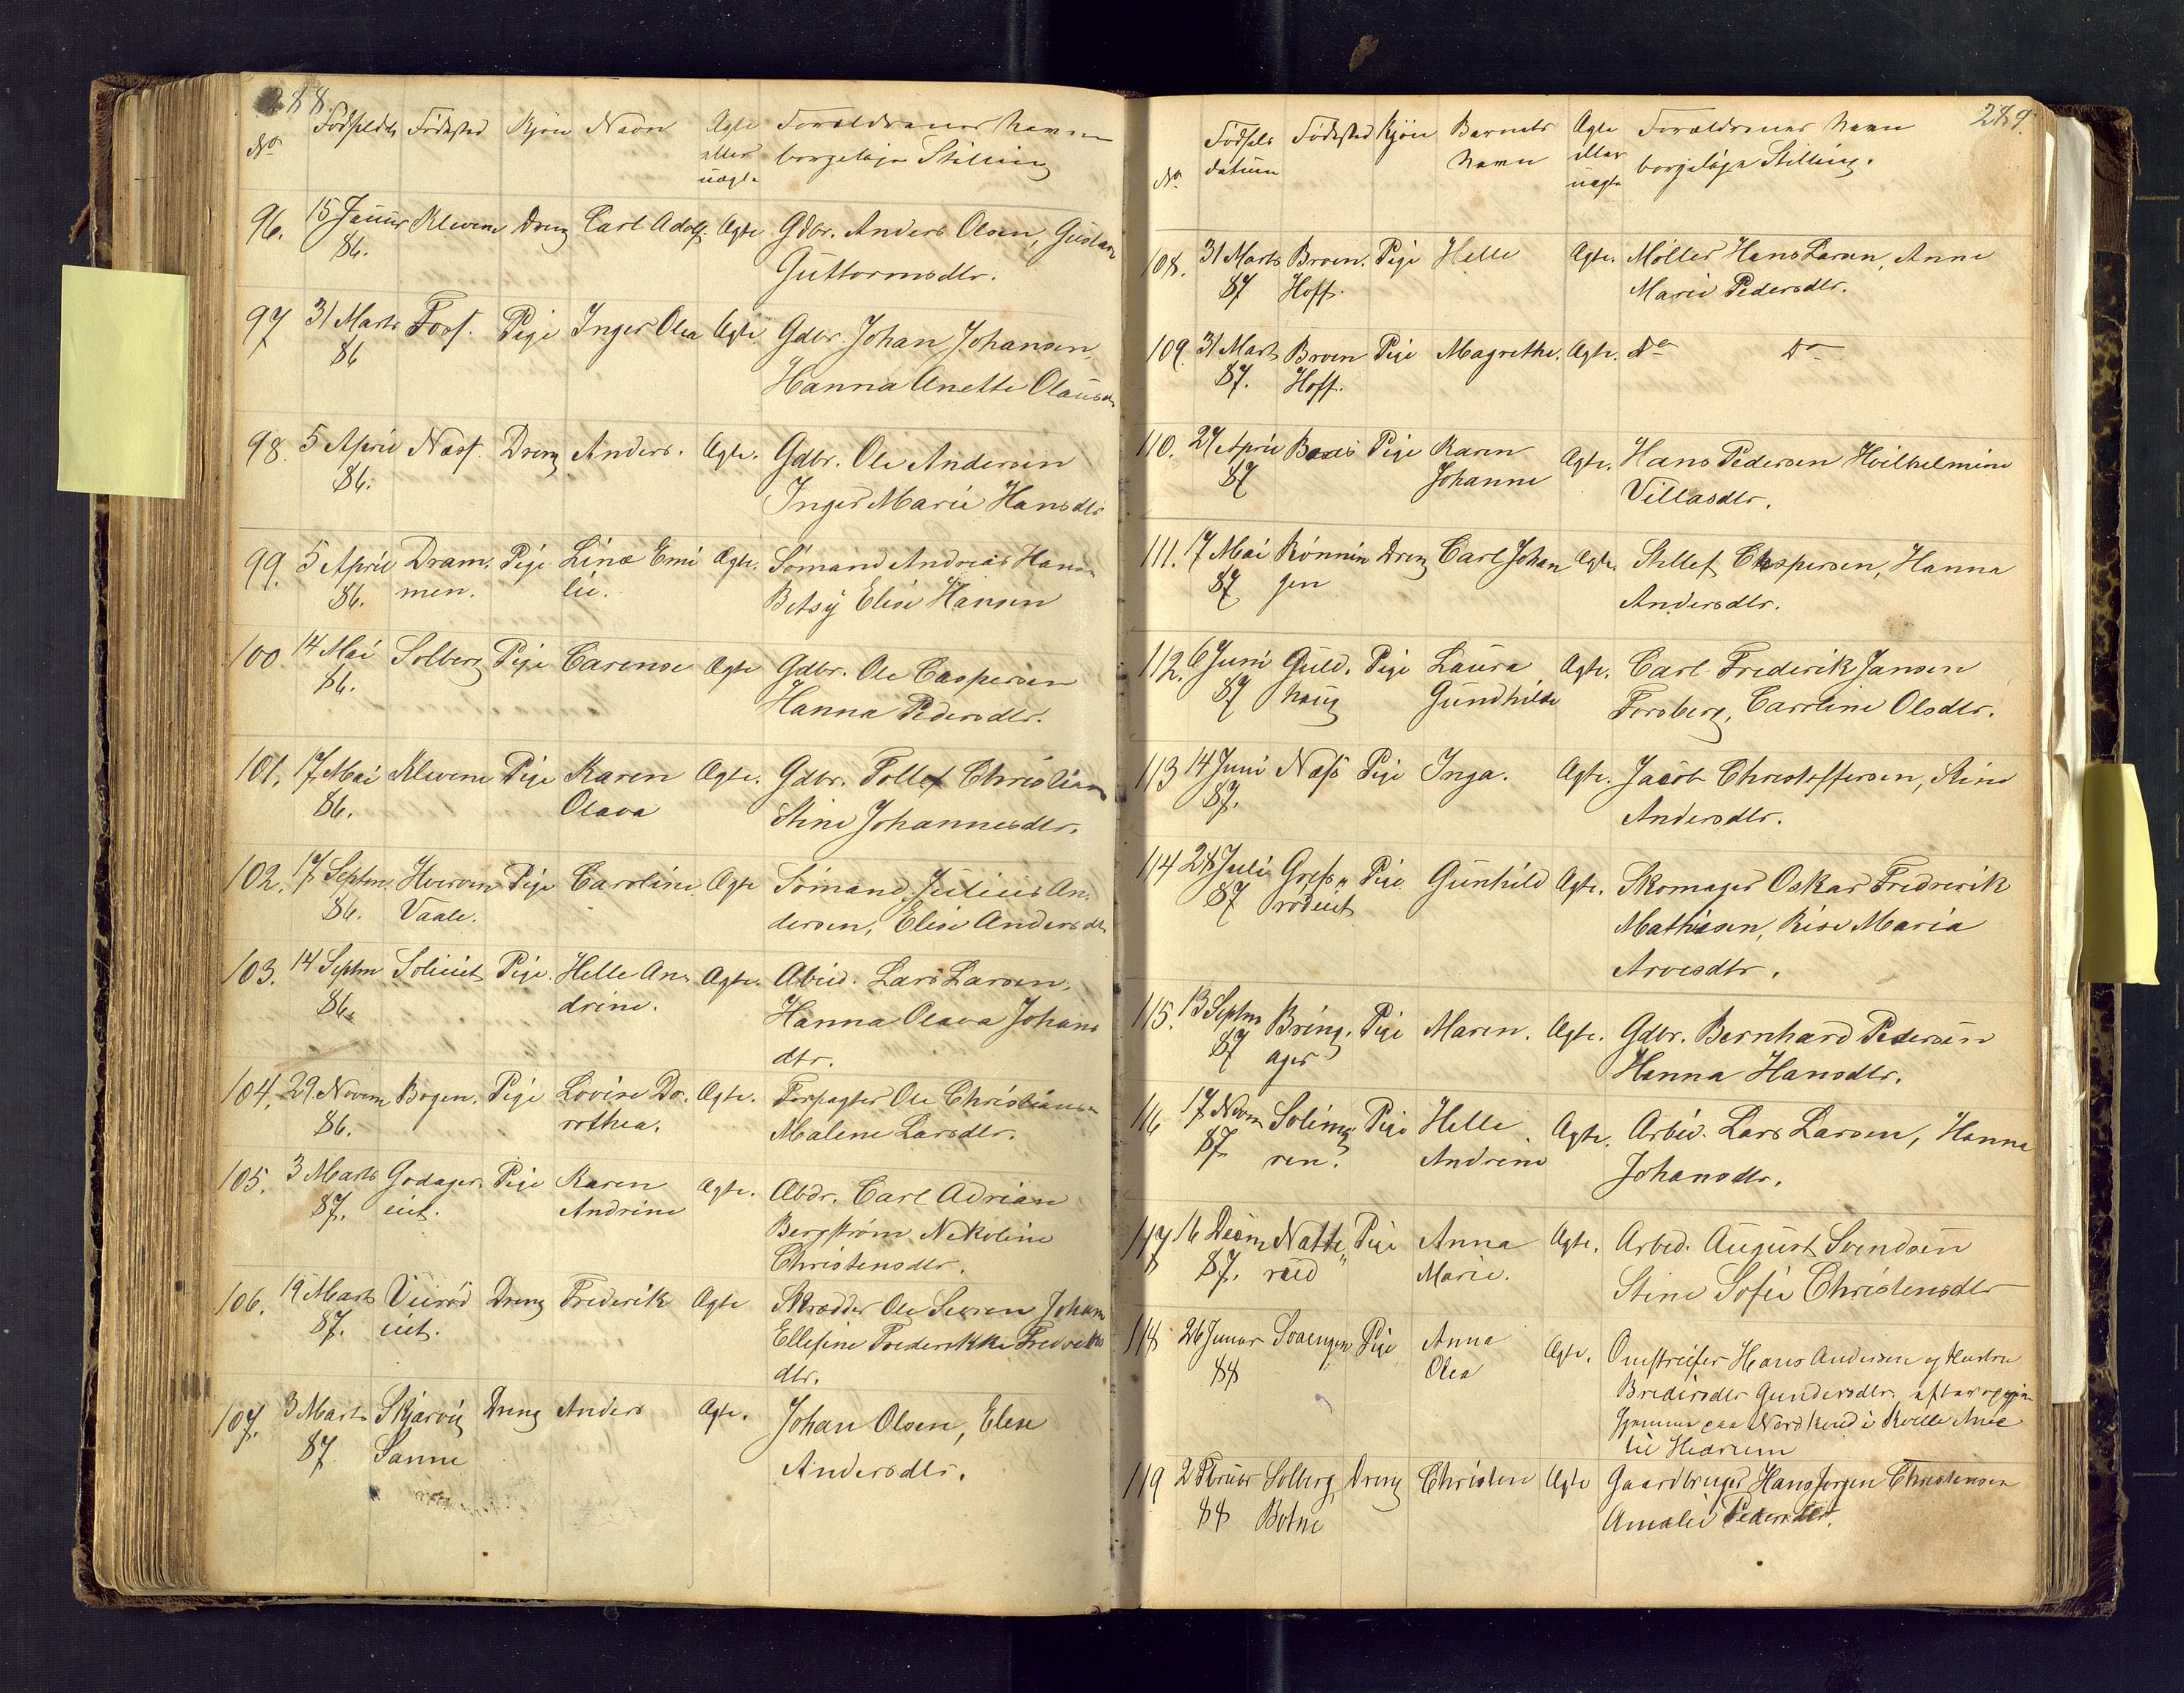 288.
No Fødselsdt Fødested Kjøn Navn Ægte Forældrenes Navn
eller borgelige Stilling
uægte
96. 15 Januar Klevene Dreng Carl Adolf. Ægte Gdbr. Anders Olsen, Gustava
86. Guttormsdtr.
97 31 Marts Foss. Pige Inger Olea Ægte Gdbr. Johan Johansen,
86 Hanna Anette Olausdtr
98. 5 April Næss. Dreng Anders. Ægte. Gdbr. Ole Andersen
86. Inger Marie Hansdtr
99. 5 April Dram. Pige Lina Emi Ægte. Sömand Andreas Hansen
86. men. lie. Betsy Elise Hansen
100. 14 Mai Solberg Pige Carense Ægte Gdbr. Ole Caspersen
86. Hanna Pedersdtr.
101. 17 Mai Klevene Pige Karen Ægte. Gdbr. Tollef Christian
86. Olava Stine Johannesdtr.
102. 17 Septm. Hverven Pige Caroline Ægte Sömand Julius An,
86. Vaale. dersen, Elise Andersdtr
103. 14 Septm Solieiet Pige. Helle An, Ægte. Abeid. Lars Larsen,
86. drine. Hanna Olava Johans
dtr.
104. 29. Novem Bogen. Pige Lovise Do, Ægte. Forpagter Ole Christiansen
86. rothea. Malene Larsdtr.
105. 3 Marts Godager. Pige Karen Ægte. Abdr. Carl Adrian
87. eiet. Andrine Bergström Nekoline
Christensdtr.
106. 19 Marts Vierød Dreng Frederik Ægte Skrædder Ole Seeren Johan
87. eiet. Ellefine Frederikke Fredriks
dtr.
107. 3 Marts Skjærvig Dreng Anders Ægte. Johan Olsen, Elese
87. Sanne Andersdtr.
289.
No Fødsels Fødested Kjøn Barnets Ægte Forældrenes Navn
datum Navn eller borgelige Stilling.
uægte
108. 31 Marts Broen. Pige Helle Ægte. Møller Hans Larsen, Anne
87 Hoff. Marie Pedersdtr.
109. 31 Marts Broen Pige Magrethe. Ægte. do do
87. Hoff.
110. 27 April Baas Pige Karen Ægte. Hans Pedersen Hvilhelmine
87 Johanne Villasdtr.
111. 17 Mai Rønnin Dreng Carl Johan Ægte. Stillef Caspersen, Hanna
87 gen Andersdtr.
112. 6 Juni Guld, Pige Laura Ægte. Carl Frederik Jansen
87 haug Gundhilde Forsberg, Carrline Olsdtr.
113 14 Juni Næss Pige Inga. Ægte. Jacob Christoffersen, Stine
87. Andersdtr.
114 28 Juli Grefs„ Pige Gunhild Ægte. Skomager Oskar Fredrerik
87 rødeiet Mathisen, Rise Maria
Arvesdtr.
115. 13 Septm Bring, Pige Maren. Ægte. Gdbr. Bernhard Pedersen
87 ager Hanna Hansdtr.
116 17 Novm Solim Pige Helle Ægte. Arbid. Lars Larsen, Hanna
87. ren. Andrine Johansdtr.
117 16 Decem Natte„ Pige Anna Ægte. Arbed. August Svendsen
87. rud Marie. Stine Sofie Christensdtr
118 26 Januar Svaengen Pige Anna Ægte. Omstreifer Hans Andersen og Hustru
88 Olea Gundersdtr. efter
paa i Kvelle Anex
til Hedrum
119 2 Februar Solberg Dreng Christen Ægte Gaardbruger Hans Jørgen Christensen
88 Botne Amalie Pedersdtr.